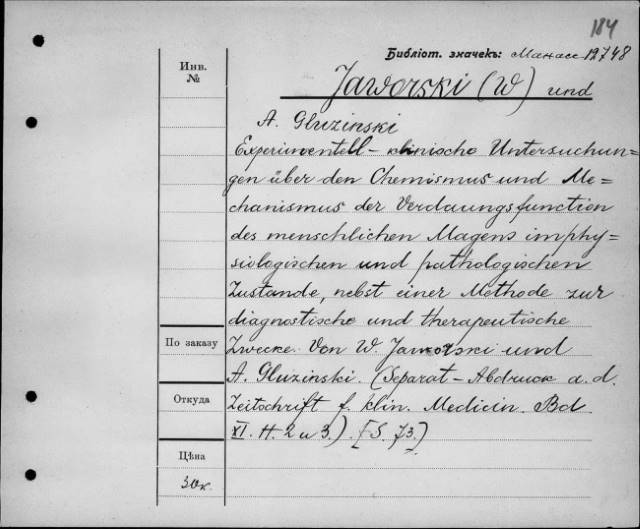 184
Библіот. значекъ: Манас 12748
Инв.
№
Jaworski (W) und
A. Gluzinski
Experimentell-klinische Untersuchun=
gen über den Chemismus und Me=
chanismus der Verdaungsfunction
des menschlichen Magens im phy-
siologischen und pathologischen
Zustande, nebst einer Methode zur
diagnostische und therapeutische
По заказу
Zwecke. Von W. Jaworski und
A. Gluzinski. (Separat-Abdruck a. d.
Откуда
Zeitschrift f. klin. Medicin. Bd.
XI. H. 2 u 3.) [S. 73.)
Цѣна
30к.